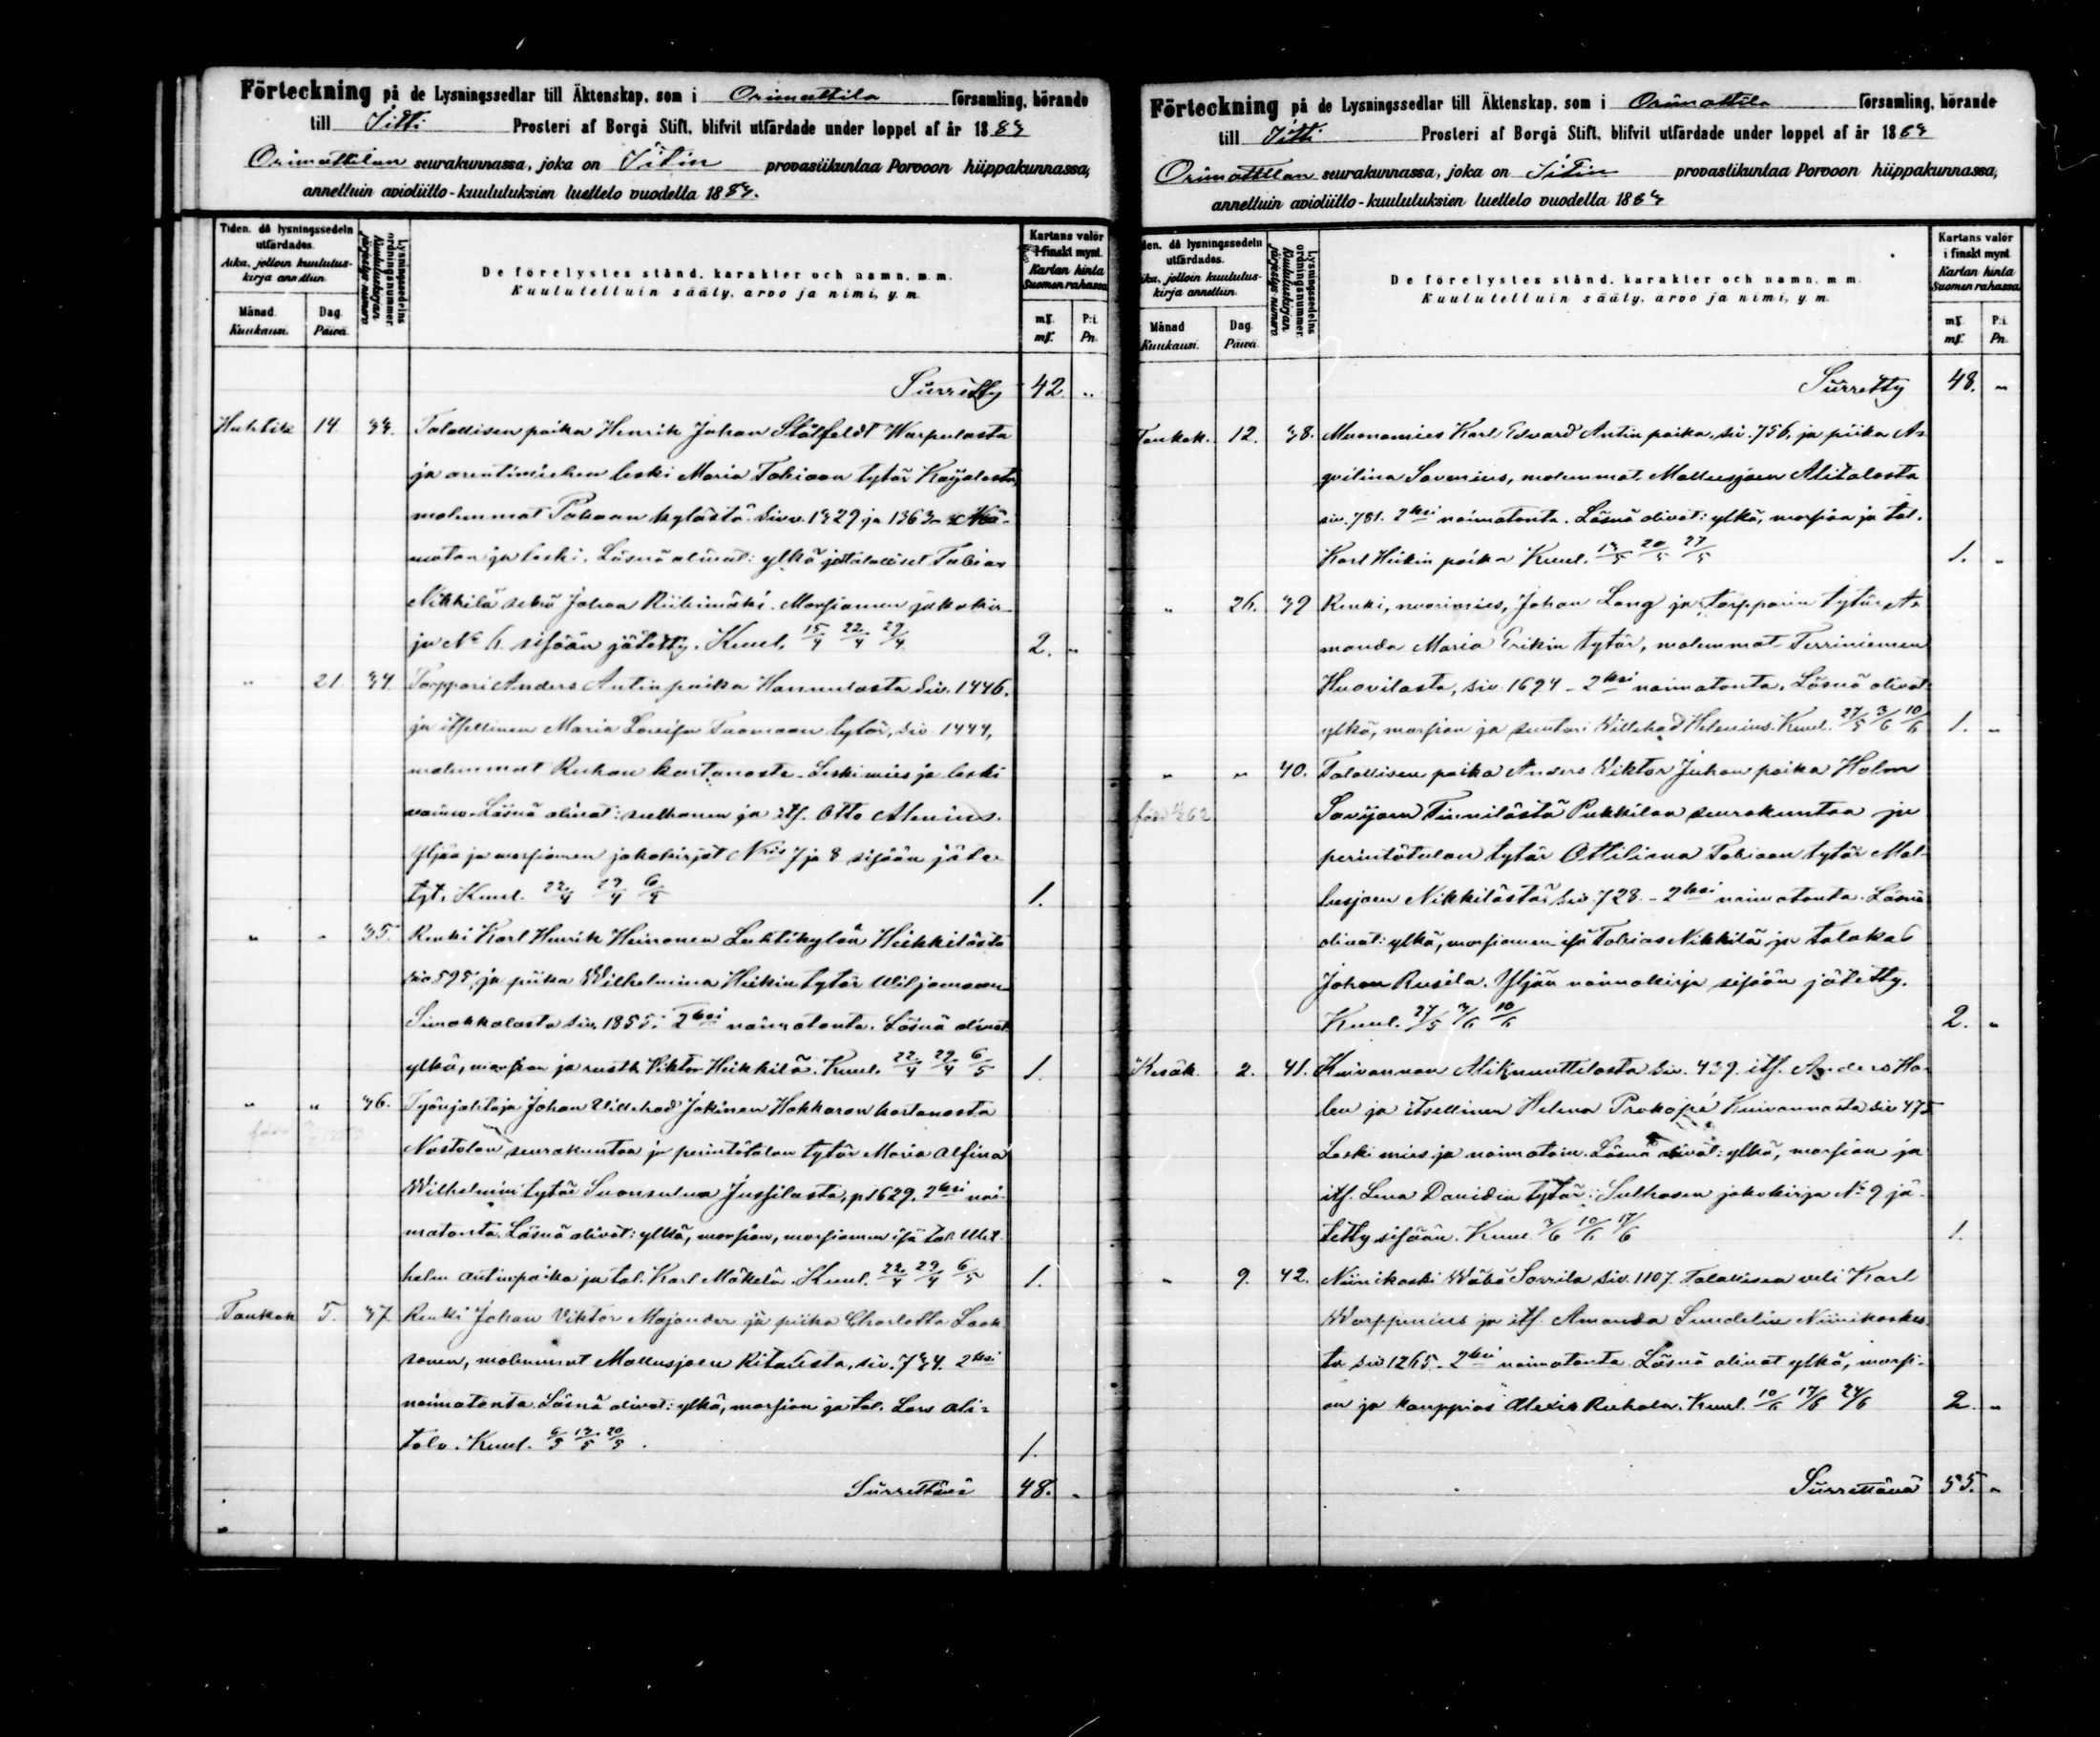 Förteckning på de Lysningssedlar till Äktenskap, som i Orimattila församling, hörande
till Iitti Prosteri af Borgå Stift, blifvit utfärdade under loppet af år 1883
Orimattilan seurakunnassa, joka on Iitin provastikuntaa Porvoon hiippakunnassa,
annettuin avioliitto-kuulutuksien luettelo vuodella 1883.
Tiden, då lysningssedeln utfärdades.
Aika, jolloin kuulutus-kirja annettun.
Månad. Kuukausi.
Dag. Päivä.
Lysningssedelns ordningsnummer.
Kuulutuskirjan järjestys-numero
De förelystes stånd, karakter och namn, m. m.
Kuulutettuin sääly, arvo ja nimi, y. m.
Kartans valör i finskt mynt.
Kartan hinta Suomen rahassa
mf. P:i.
mf. Pn.
Siirretty 42. "
Huhtik 14. 33. Talollisen poika Henrik Johan Stålfeldt Warpulasta
ja arentimiehen leski Maria Tobiaan tytär Kaijalasta,
molemmat Pakaan kylästä siv. 1329 ja 1363
matan ja leski. Läsnä olivat: ylkä ja talolliset Tobias
Nikkilä sekä Johan Riihimäki. Morsiamen jakokir-
ja No 6. sisään jätetty. Kuul. 15/4 22/4 29/4 2. "
" 21. 34. Torppari Anders Antin poika Hannulasta siv. 1446.
ja itsellinen Maria Lovisa Tuomaan tytär, siv. 1444,
molemmat Ruhan kartanosta. Leskimies ja leski
vaimo. Läsnä olivat: sulhanen ja its. Otto Alenius.
Yljän ja morsiamen jakokirjat Nris 7 ja 8 sisään jäte-
tyt. Kuul. 22/4 29/4 6/5 1.
" " 35. Renki Karl Henrik Heinonen Luhtikylän Heikkilästä
siv. 595, ja piika Wilhelmina Heikin tytär Wiljamaan
Simakkalasta siv. 1855. 2ksi naimatonta. Läsnä olivat
ylkä, morsian ja rusth. Viktor Heikkilä. Kuul. 22/4 29/4 6/5 1.
" " 36. Työnjohtaja Johan Willehad Jokinen Hakkaran kartanosta
Nastolan seurakuntaa ja perintötalon tytär Maria Alfina
Wilhelmin tytär Jussilasta, p. 1629. 2ksi nai-
matonta. Läsnä olivat: ylkä, morsian, morsiamen isä tal. Wil-
helm Antinpoika ja tal. Karl Mäkelä. Kuul. 22/4 29/4 6/5 1.
Toukok 5. 37. Renki Johan Viktor Majander ja piika Charlotta Laak-
sonen, molemmat Mallusjoen Ritalasta, siv. 734. 2ksi
naimatonta. Läsnä olivat: ylkä, morsian ja tal. Lars Ali-
talo. Kuul. 6/5 13/5 20/5. 1.
Siirrettävä 48. "
Förteckning på de Lysningssedlar till Äktenskap, som i Orimattila församling, hörande
till Iitti Prosteri af Borgå Stift, blifvit utfärdade under loppet af år 1883
Orimattilan seurakunnassa, joka on Iitin provastikuntaa Porvoon hiippakunnassa,
annettuin avioliitto-kuulutuksien luettelo vuodella 1883
den, då lysningssedeln utfärdades.
ika, jolloin kuulutus-kirja annettun.
Månad Kuukausi.
Dag. Päivä.
Lysningssedelns ordningsnummer.
Kuulutuskirjan järjestys-numero
De förelystes stånd, karakter och namn, m. m.
Kuulutettuin sääly, arvo ja nimi, y. m.
Kartans valör i finskt mynt.
Kartan hinta Suomen rahassa
mf. P:i.
mf. Pn.
Siirretty 48. "
Toukok. 12. 38. Muonamies Karl Edvard Antin poika, siv. 756, ja piika A-
qvilina Savenius, molemmat Mallusjoen Alitalosta
siv. 781. 2ksi naimatonta. Läsnä olivat: ylkä, morsian ja tal.
Karl Heikin poika Kuul. 13/5 20/5 27/5 1. "
" 26. 39 Renki, nuorimies, Johan Lang ja torpparin tytär A-
manda Maria Erikin tytär, molemmat Terriniemen
Huovilasta, siv. 1694 - 2ksi naimatonta. Läsnä olivat
ylkä, morsian ja suutari Willehad Helenius. Kuul. 27/5 3/6 10/6 1. "
" " 40. Talollisen poika Anders Viktor Juhan poika Holm
Savijoen Tinnilästä Pukkilan seurakuntaa ja
perintötalon tytär Ottiliana Tobiaan tytär Mal-
lusjoen Nikkilästä siv. 728. - 2ksi naimatonta. Läsnä
olivat: ylkä, morsiamen isä Tobias Nikkilä ja talokas
Johan Rusila. Yljän naimakirja sisään jätetty.
Kuul. 27/5 3/6 10/6 2. "
Kesäk. 2. 41. Kuivannon Aliknuuttilasta siv. 439. its. Anders Ha-
len ja itsellinen Helena Prokopé Kuivannosta siv 475
Leski mies ja naimatoin. Läsnä olivat: ylkä, morsian ja
its. Lena Davidin tytär. Sulhasen jakokirja No 9 jä-
tetty sisään. Kuul. 3/6 10/6 17/6 1.
" 9. 42. Niinikoski Wähä Sorrila siv. 1107. Talollisen veli Karl
Warppenius ja its. Amanda Sundelin Niinikoskes-
ta siv 1265. 2ksi naimatonta. Läsnä olivat ylkä, morsi-
an ja kauppias Alexis Ruhala. Kuul. 10/6 17/6 24/6 2. "
Siirrettävä 55. "